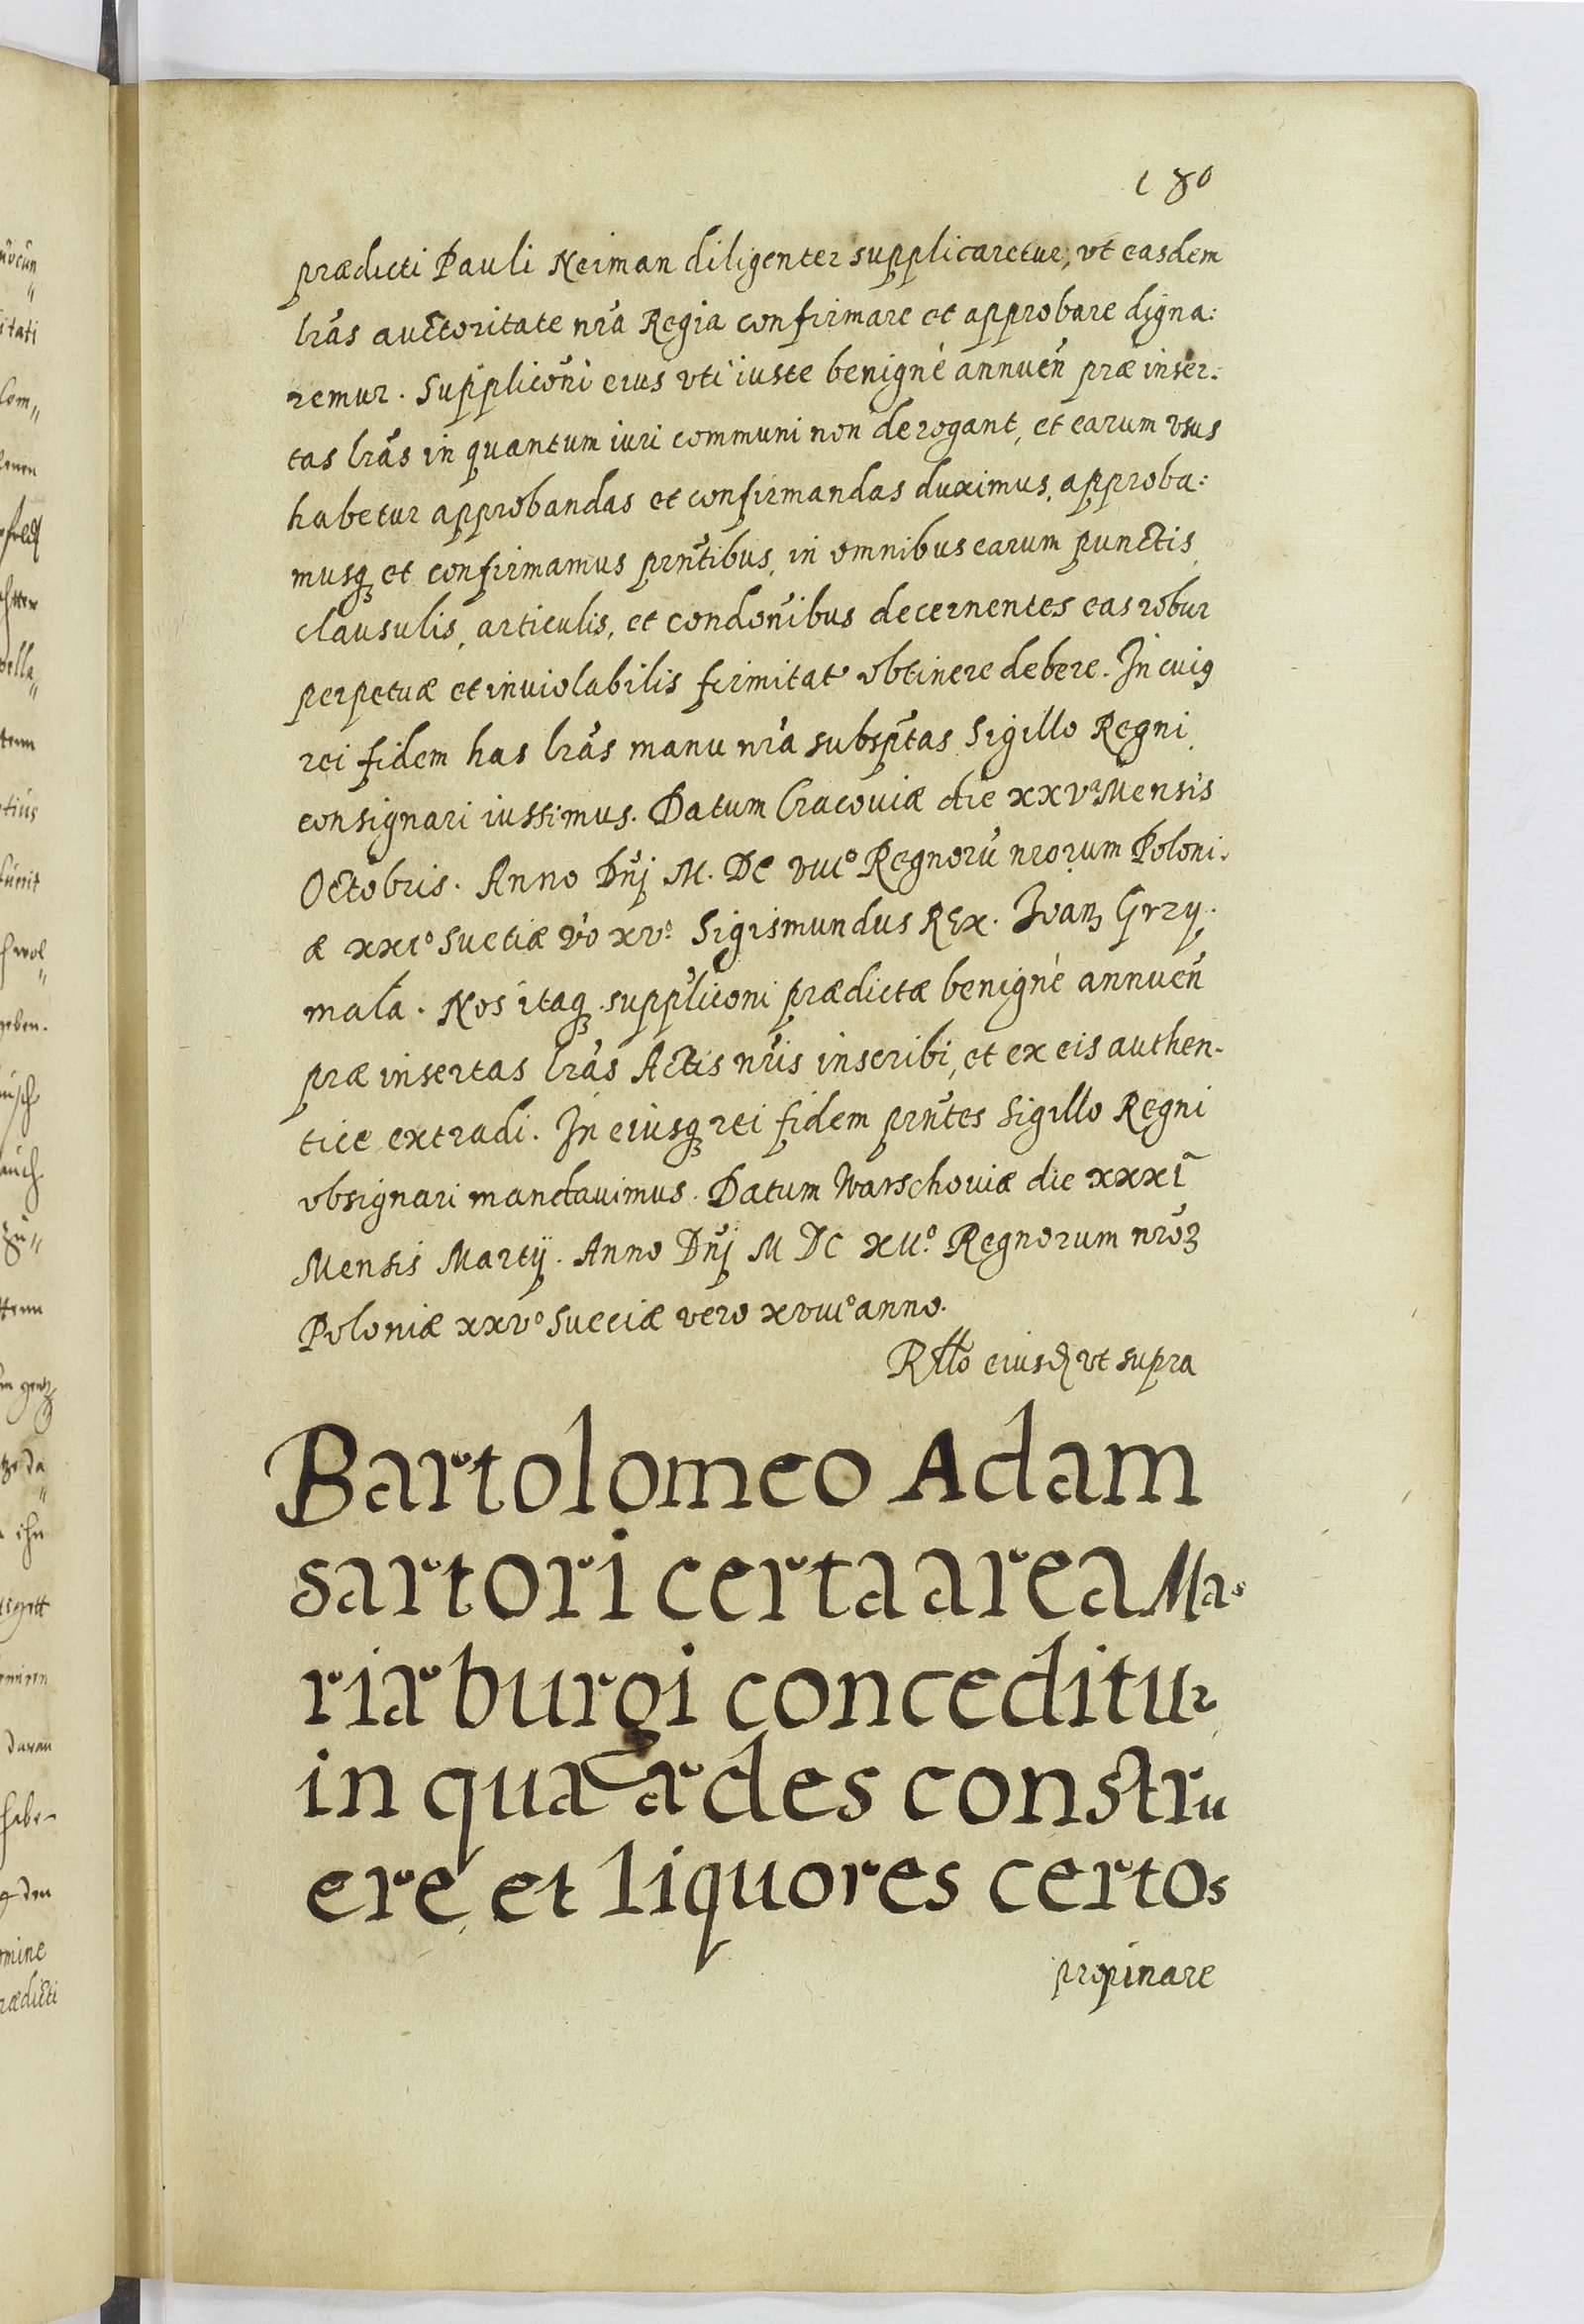 180
prædicti Pauli Neiman diligenter supplicaretur, vt easdem
lrãs auctoritate nrã Regia confirmare et approbare digna:
remur. Supplicõni eius vti iuste benignè annuẽn præ inser:
tas lrãs in quantum iuri communi non derogant, et earum vsus
habetur approbandas et confirmandas duximus, approba:
musqꝫ et confirmamus prñtibus, in omnibus earum punctis,
clausulis, articulis, et condonĩbus decernentes eas robur
perpetuæ et inuiolabilis firmitat obtinere debere. In cuiꝯ
rei fidem has lrãs manu nrã subsptãs Sigillo Regni
consignari iussimus. Datum Cracouiæ die xxvᵃ Mensis
Octobris. Anno Dñj M. DC viiiº Regnorũ nrorum Poloni.
æ xxiº Suetiæ võ xvº. Sigismundus REx. Ioañ Grzy.
mala. Nos itaqꝫ supplicõni prædictæ benignè annuẽn
præ insertas lrãs Actis nrĩs inscribi, et ex eis authen-
tice extradi. In eiusqꝫ rei fidem prñtes Sigillo Regni
obsignari mandauimus. Datum Warschouiæ die xxxĩ
Mensis Martÿ. Anno Dñj M DC xiiº. Regnorum nrõꝫ
Poloniæ xxvº Sueciæ vero xviiiº anno.
Rtto eiusdꝫ vt supra
Bartolomeo Adam
sartori certa area Ma-
riæburgi conceditur
in qua ædes constru
ere et liquores certos
propinare